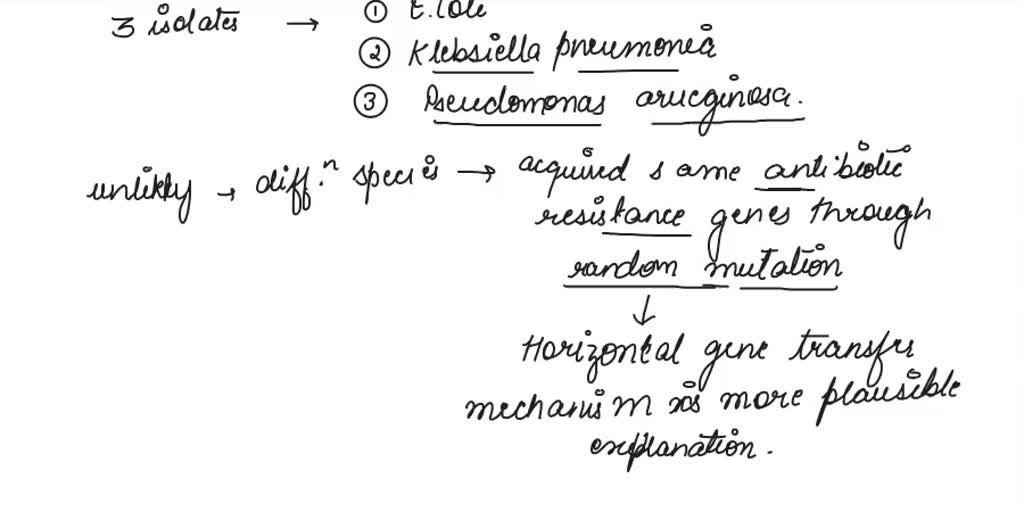 3 isolates → ① E. Cole
② Klebsiella pneumonea
③ Pseudomonas arucginosa.
unlikly → diff.n species → acquired same antibiotic
resistance genes through
random mutation
↓
Horizontal gene transfer
mechanism is more plausible
explanation.